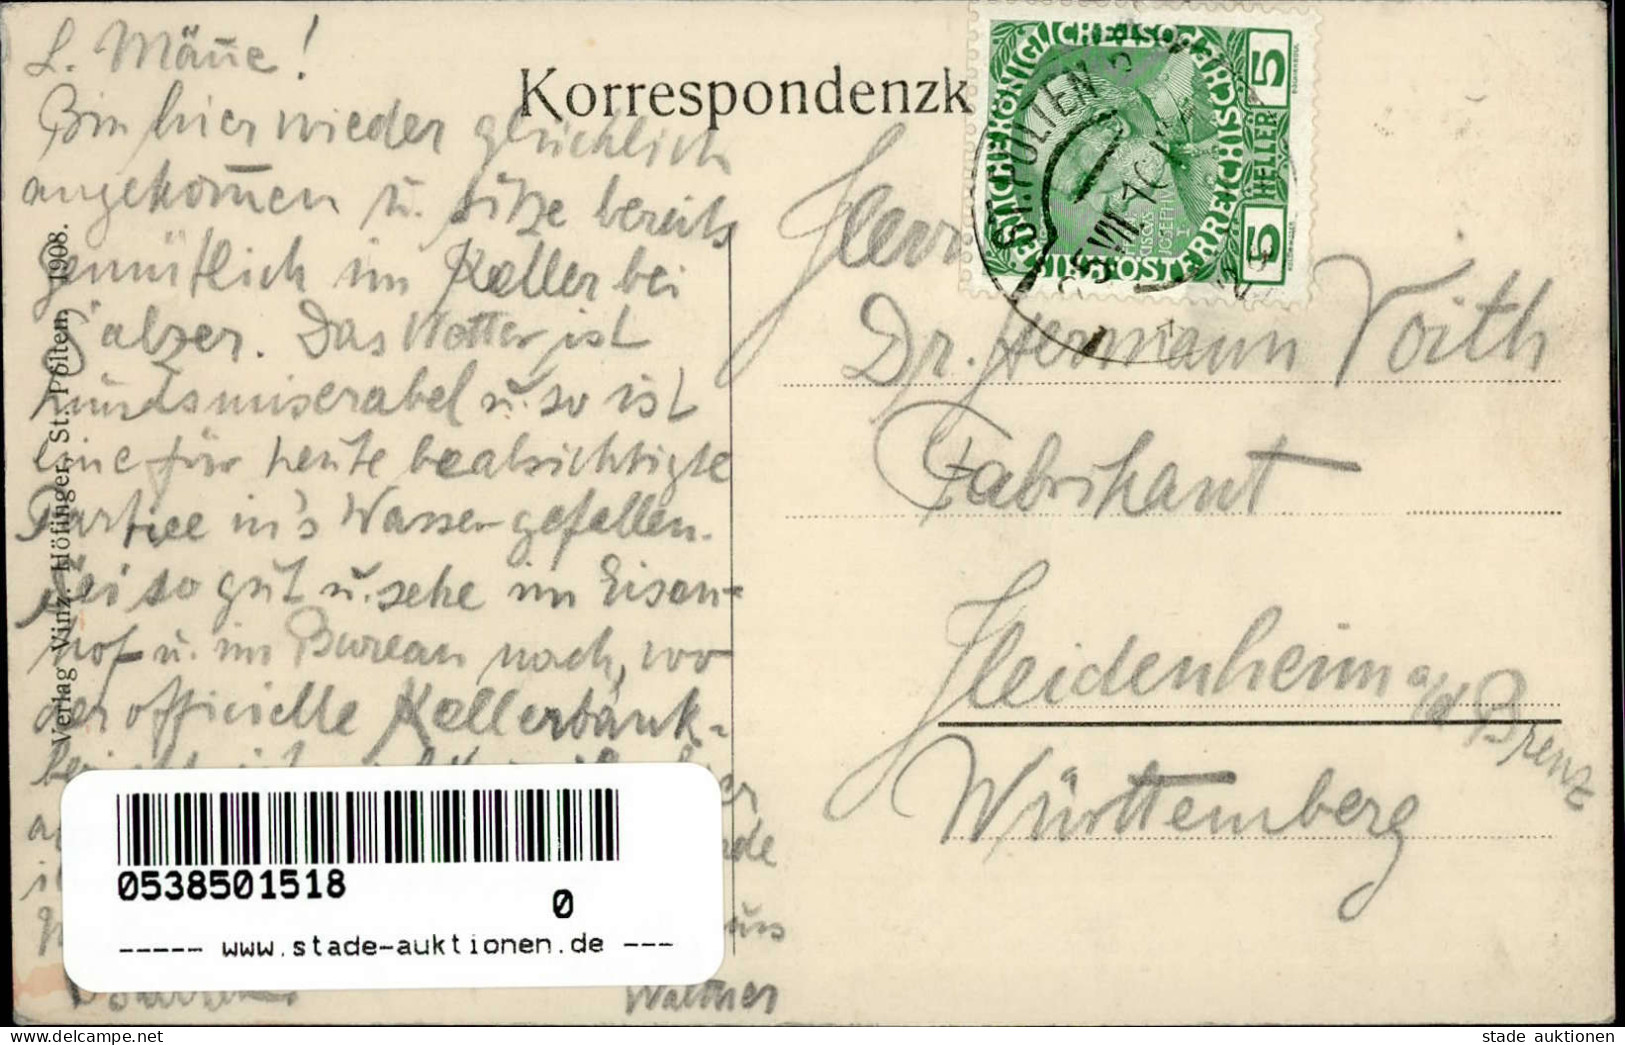 L. Mäne!
Bin hier wieder glücklich
angekommen u. sitze bereits
gemütlich im Keller bei
Salzer. Das Wetter ist
hundsmiserabel u. so ist
eine für heute beabsichtigte
Partiee in's Wasser gefallen.
Sei so gut u. sehe im Eisen-
hof u. im Bureau nach, wo
der officielle Kellerbank-
Walther
Verlag Vinz. Höfinger, St. Pölten, 1908.
Korrespondenzk
KAISERLICHE KÖNIGLICHE ÖSTERREICHISCHE POST
5 HELLER 5
FRANCISCUS JOSEPH I
ST. PÖLTEN
Herrn
Dr. Hermann Voith
Fabrikant
Heidenheim a/d Brenz
Württemberg
0538501518
0
----- www.stade-auktionen.de ---
stade auktionen